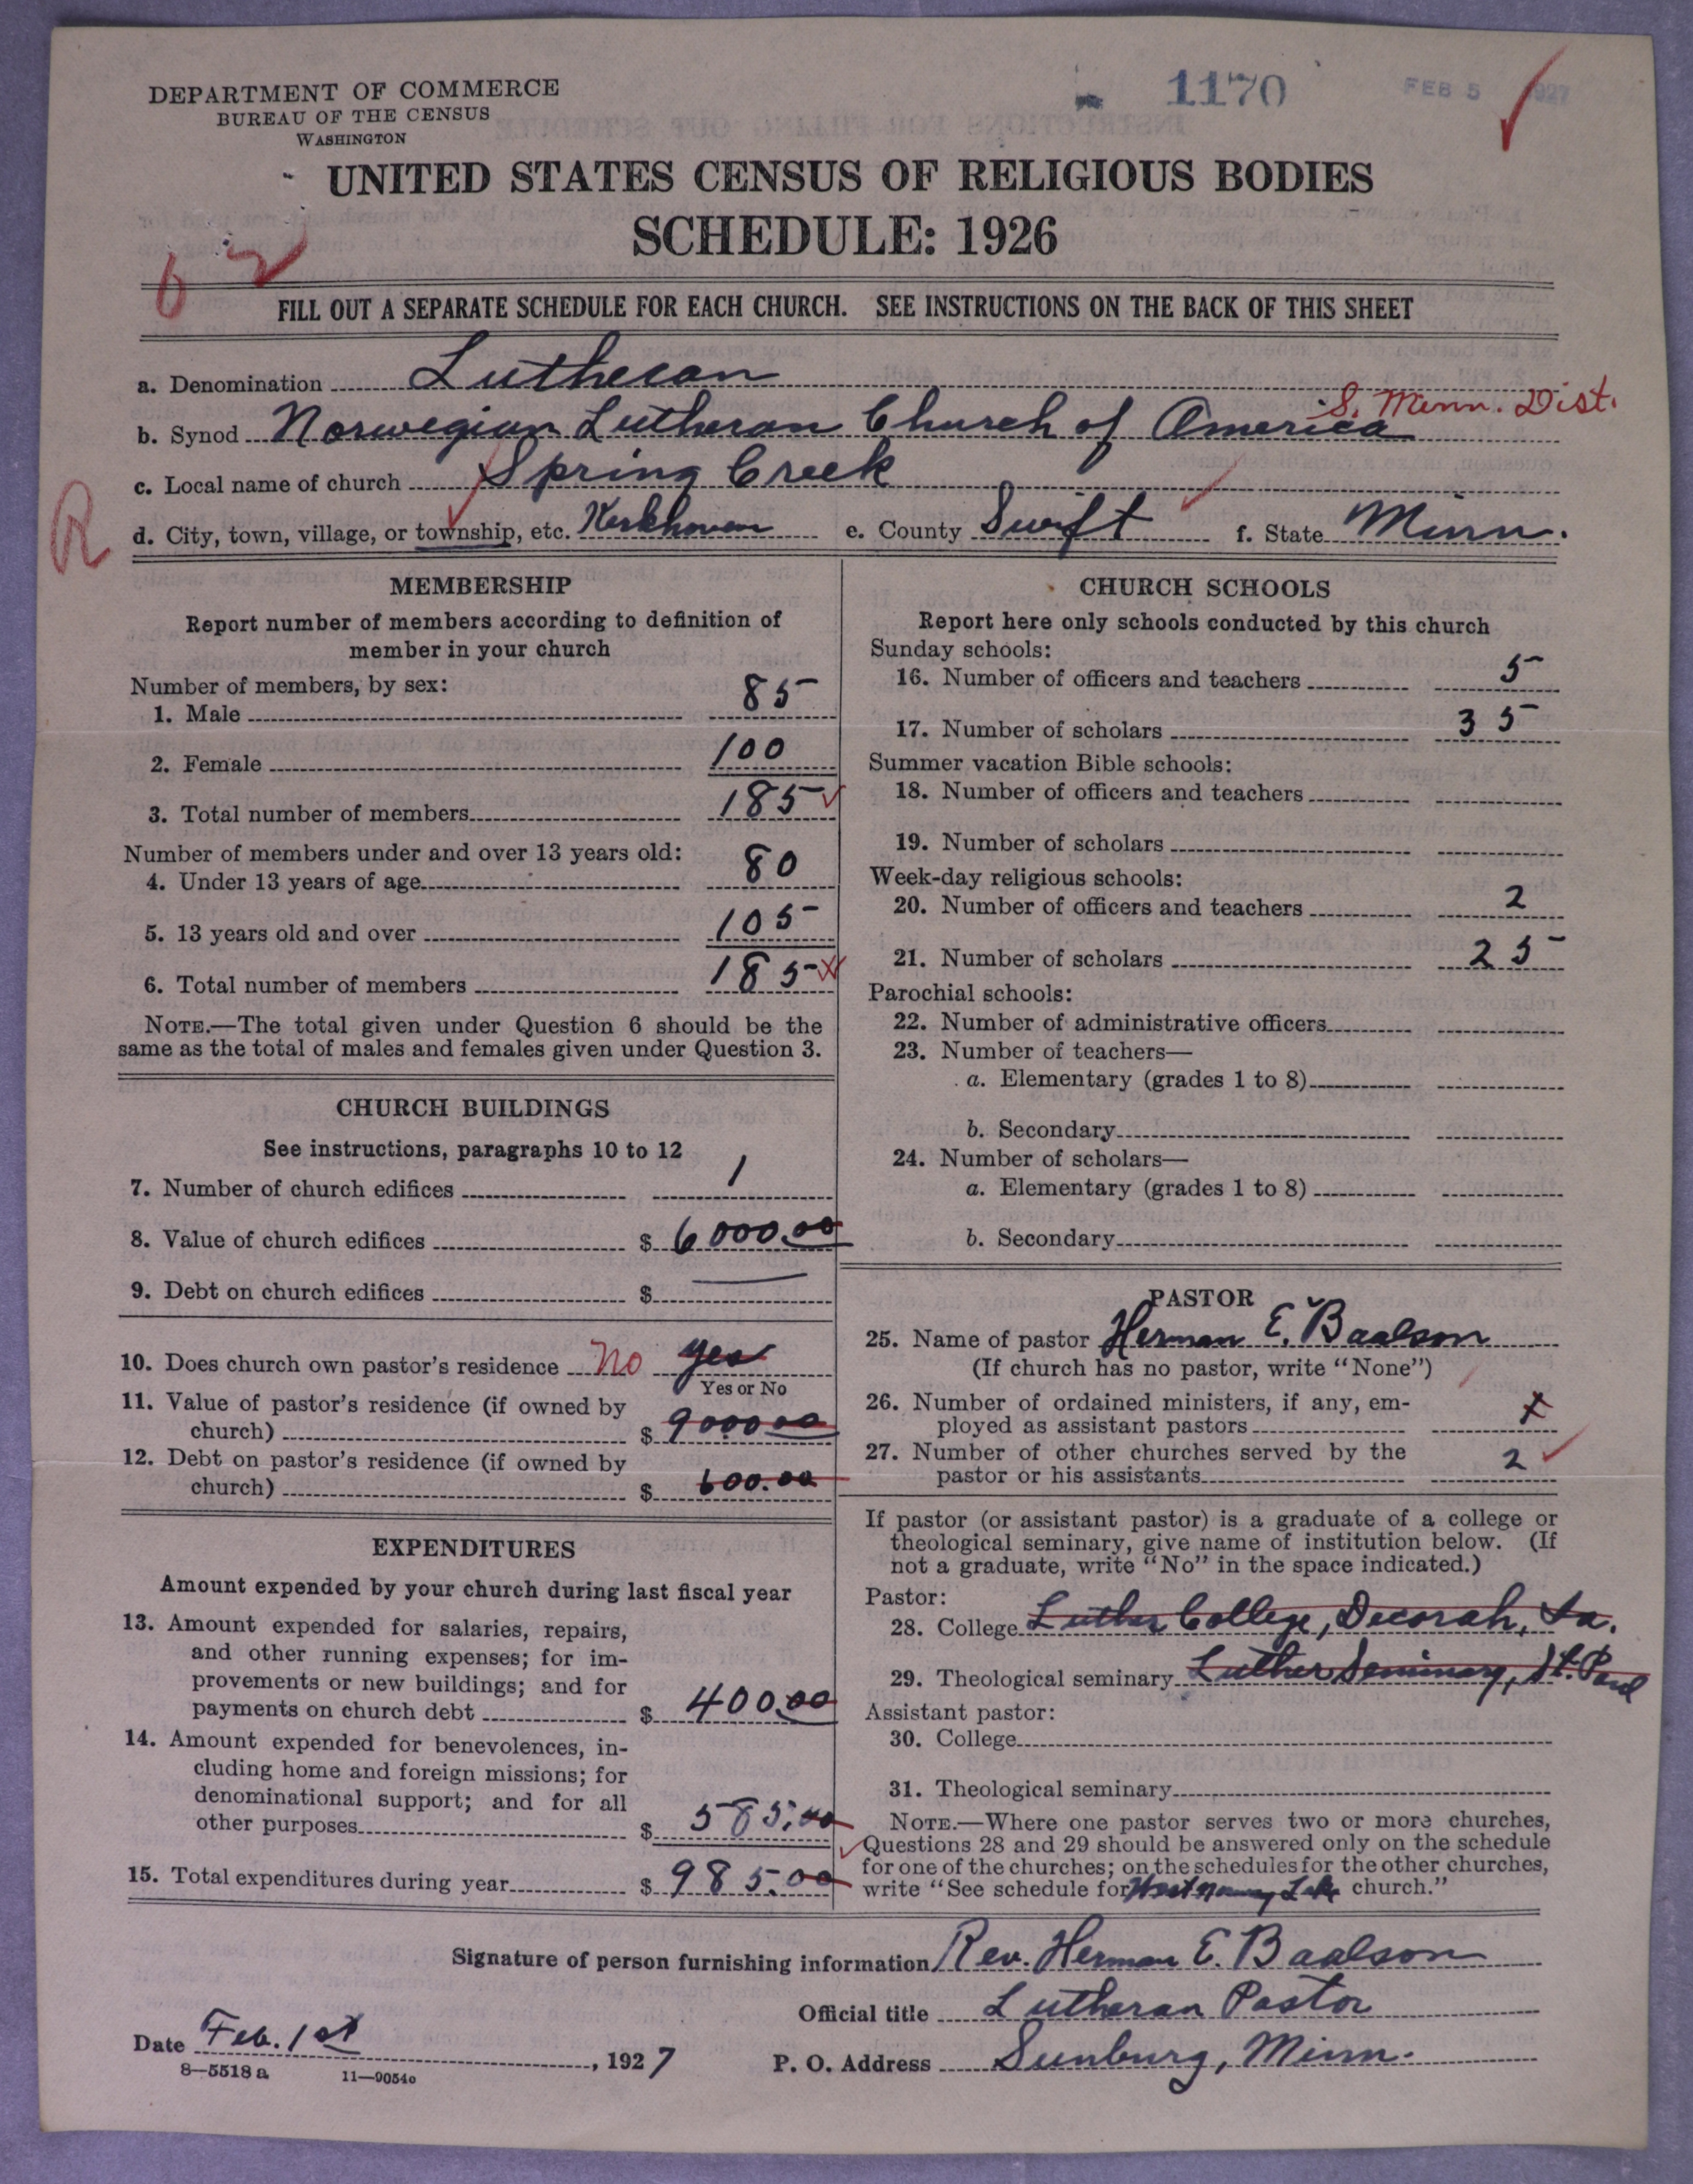 DEPARTMENT OF COMMERCE
BUREAU OF THE CENSUS
WASHINGTON
1170
FEB 5 1927
UNITED STATES CENSUS OF RELIGIOUS BODIES
SCHEDULE: 1926
62
FILL OUT A SEPARATE SCHEDULE FOR EACH CHURCH. SEE INSTRUCTIONS ON THE BACK OF THIS SHEET
a. Denomination Lutheran
S. Minn. Dist.
b. Synod Norwegian Lutheran Church of America
c. Local name of church Spring Creek
R
d. City, town, village, or township, etc. Kerkhoven e. County Swift f. State Minn.
MEMBERSHIP
Report number of members according to definition of
member in your church
Number of members, by sex:
1. Male 85
2. Female 100
3. Total number of members 185
Number of members under and over 13 years old:
4. Under 13 years of age 80
5. 13 years old and over 105
6. Total number of members 185
NOTE.—The total given under Question 6 should be the
same as the total of males and females given under Question 3.
CHURCH BUILDINGS
See instructions, paragraphs 10 to 12
7. Number of church edifices 1
8. Value of church edifices $ 6000.00
9. Debt on church edifices $ —
10. Does church own pastor's residence No yes
Yes or No
11. Value of pastor's residence (if owned by
church) $ 9000.00
12. Debt on pastor's residence (if owned by
church) $ 600.00
EXPENDITURES
Amount expended by your church during last fiscal year
13. Amount expended for salaries, repairs,
and other running expenses; for im-
provements or new buildings; and for
payments on church debt $ 400.00
14. Amount expended for benevolences, in-
cluding home and foreign missions; for
denominational support; and for all
other purposes $ 585.00
15. Total expenditures during year $ 985.00
CHURCH SCHOOLS
Report here only schools conducted by this church
Sunday schools:
16. Number of officers and teachers 5
17. Number of scholars 35
Summer vacation Bible schools:
18. Number of officers and teachers
19. Number of scholars
Week-day religious schools:
20. Number of officers and teachers 2
21. Number of scholars 25
Parochial schools:
22. Number of administrative officers
23. Number of teachers—
a. Elementary (grades 1 to 8)
b. Secondary
24. Number of scholars—
a. Elementary (grades 1 to 8)
b. Secondary
PASTOR
25. Name of pastor Herman E. Baalson
(If church has no pastor, write "None")
26. Number of ordained ministers, if any, em-
ployed as assistant pastors x
27. Number of other churches served by the
pastor or his assistants 2
If pastor (or assistant pastor) is a graduate of a college or
theological seminary, give name of institution below. (If
not a graduate, write "No" in the space indicated.)
Pastor:
28. College Luther College, Decorah, Ia.
29. Theological seminary Luther Seminary, St. Paul
Assistant pastor:
30. College
31. Theological seminary
NOTE.—Where one pastor serves two or more churches,
Questions 28 and 29 should be answered only on the schedule
for one of the churches; on the schedules for the other churches,
write "See schedule for West Norway Lake church."
Signature of person furnishing information Rev. Herman E. Baalson
Official title Lutheran Pastor
Date Feb. 1st, 1927 P. O. Address Sunburg, Minn.
8—5518 a 11—9054o